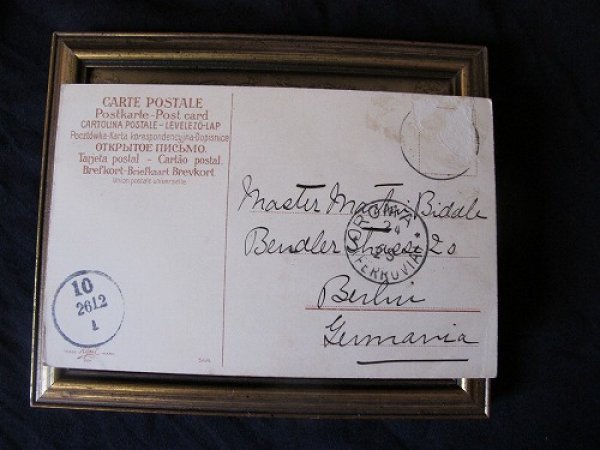 CARTE POSTALE
Postkarte-Post card
CARTOLINA POSTALE - LEVELEZŐ-LAP
Pocztówka-Karta korespondencyjna-Dopisnice
ОТКРЫТОЕ ПИСЬМО.
Tarjeta postal - Cartão postal
Brefkort-Briefkaart Brevkort
Union postale universelle
Master Martin Biddle
Bendler Strasse 20
Berlin
Germania
24
FERROVIA
10
2612
1